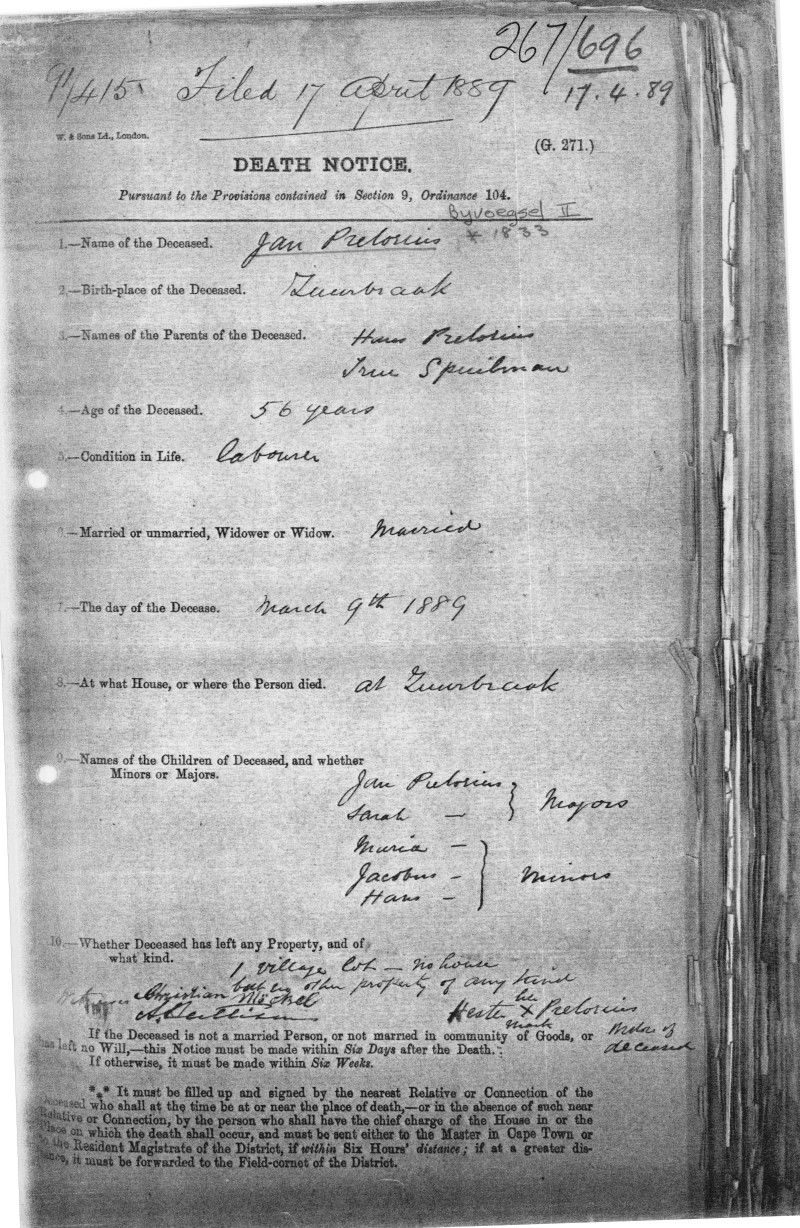 267/696
9/415 Filed 17 April 1889 17.4.89
W. & Sons Ld., London.
(G. 271.)
DEATH NOTICE.
Pursuant to the Provisions contained in Section 9, Ordinance 104.
Byvoegsel II
* 1833
1.—Name of the Deceased. Jan Pretorius
2.—Birth-place of the Deceased. Zuurbraak
3.—Names of the Parents of the Deceased. Hans Pretorius
Spielman
4.—Age of the Deceased. 56 years
5.—Condition in Life. labourer
6.—Married or unmarried, Widower or Widow. Married
7.—The day of the Decease. March 9th 1889
8.—At what House, or where the Person died. at Zuurbraak
9.—Names of the Children of Deceased, and whether
Minors or Majors.
Jan Pretorius
Sarah — } Majors
Maria —
Jacobus - } minors
Hans -
10.—Whether Deceased has left any Property, and of
what kind. 1 village lot — no house
but no other property of any kind
Witnesses Christian Möckel
Hester her x mark Pretorius
Widow of deceased
If the Deceased is not a married Person, or not married in community of Goods, or
has left no Will,—this Notice must be made within Six Days after the Death.
If otherwise, it must be made within Six Weeks.
*** It must be filled up and signed by the nearest Relative or Connection of the
Deceased who shall at the time be at or near the place of death,—or in the absence of such near
Relative or Connection, by the person who shall have the chief charge of the House in or the
Place on which the death shall occur, and must be sent either to the Master in Cape Town or
to the Resident Magistrate of the District, if within Six Hours' distance; if at a greater dis-
tance, it must be forwarded to the Field-cornet of the District.